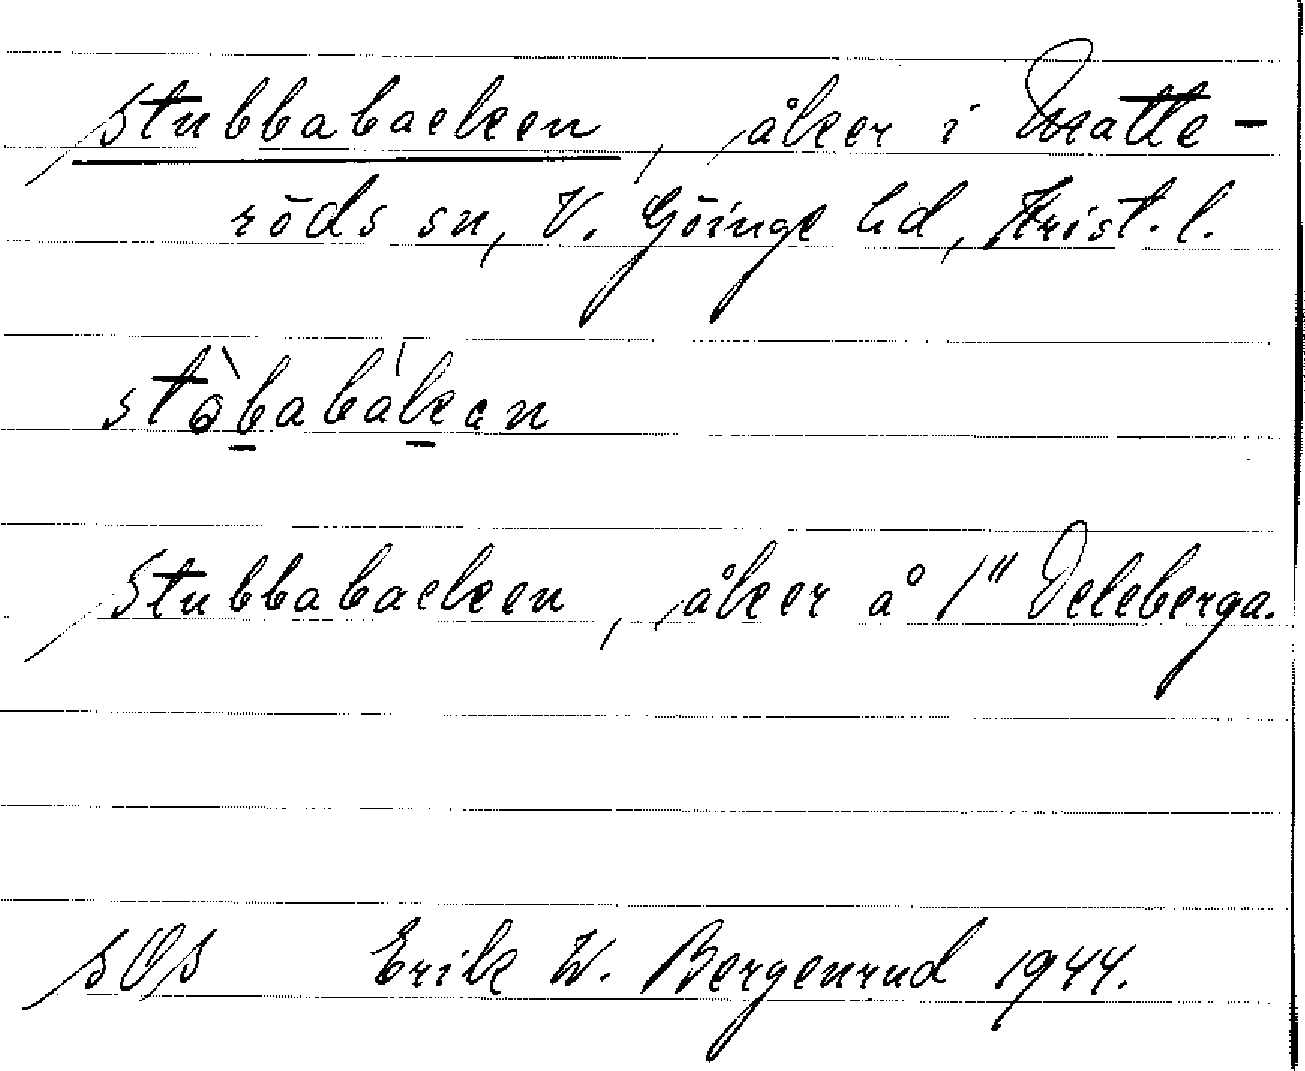 Stubbabacken, åker i Matte-
röds sn, V. Göinge hd, Krist. l.
stòbabákan
Stubbabacken, åker å 1" Deleberga.
SOS Erik W. Bergenrud 1944.